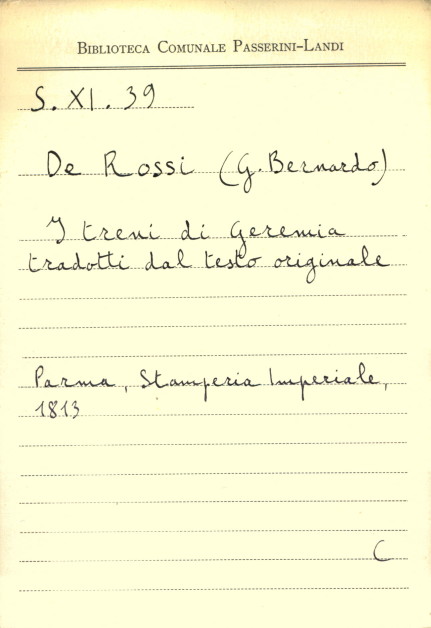 Biblioteca Comunale Passerini-Landi
S. XI. 39
De Rossi (G. Bernardo)
I treni di Geremia
tradotti dal testo originale
Parma, Stamperia Imperiale,
1813
C